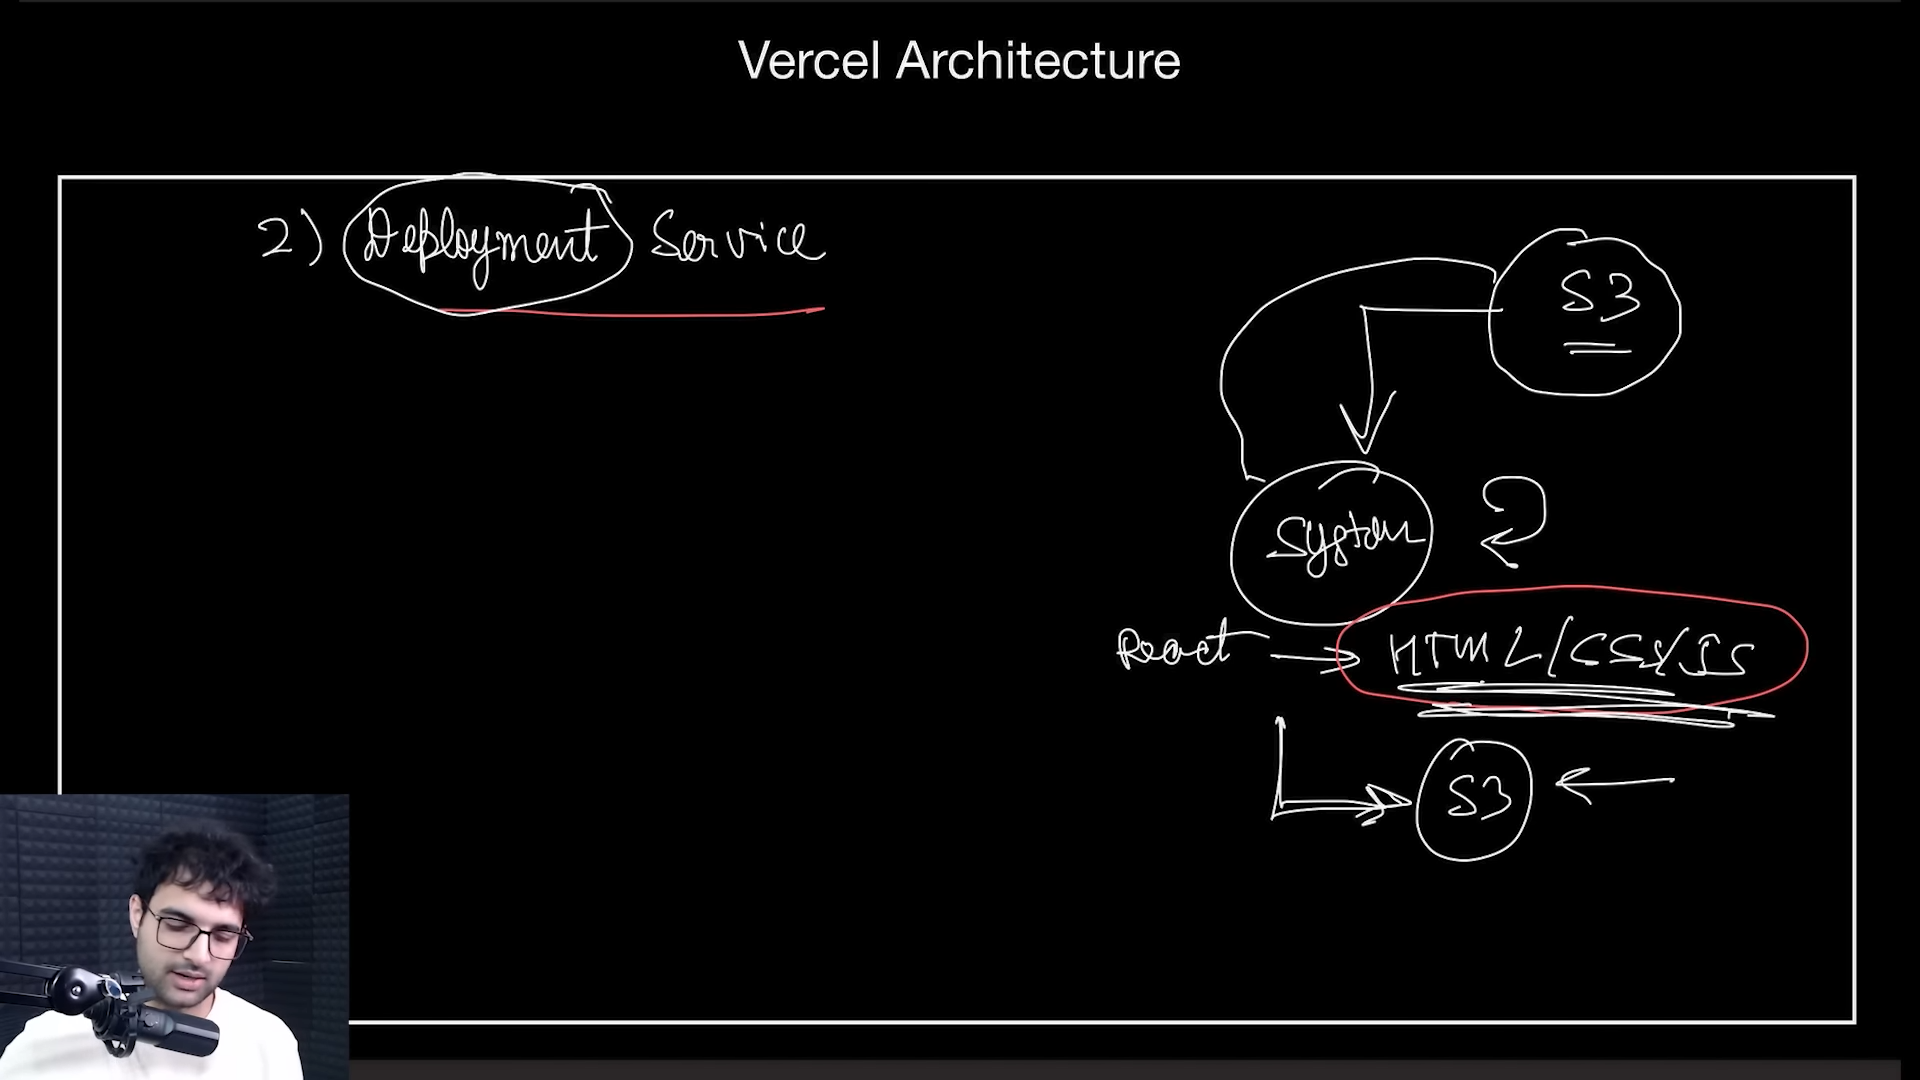 Vercel Architecture
2) Deployment Service
S3
System
React → HTML/CSS/JS
S3